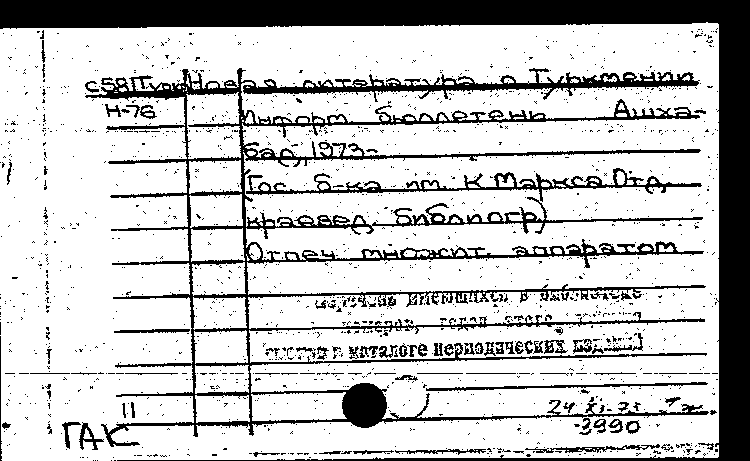 С58(Турк) Новая литература о Туркмении
Н-76
Информ бюллетень Ашха-
бад, 1973-
(Гос. б-ка им. К Маркса Отд,
краевед, библиогр)
Отпеч множит. аппаратом
перечень имеющихся в библиотеке
номеров, годов этого
смотри в каталоге периодических изданий
11
24 XI-75
3990
ГАК